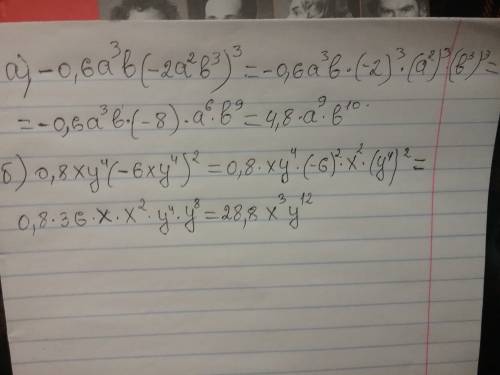 а) -0,6a³b(-2a²b³)³ = -0,6a³b·(-2)³·(a²)³(b³)³=
= -0,6a³b·(-8)·a⁶·b⁹ = 4,8·a⁹·b¹⁰.
б) 0,8xy⁴(-6xy⁴)² = 0,8·xy⁴·(-6)²·x²·(y⁴)²=
0,8·36·x·x²·y⁴·y⁸ = 28,8x³y¹²